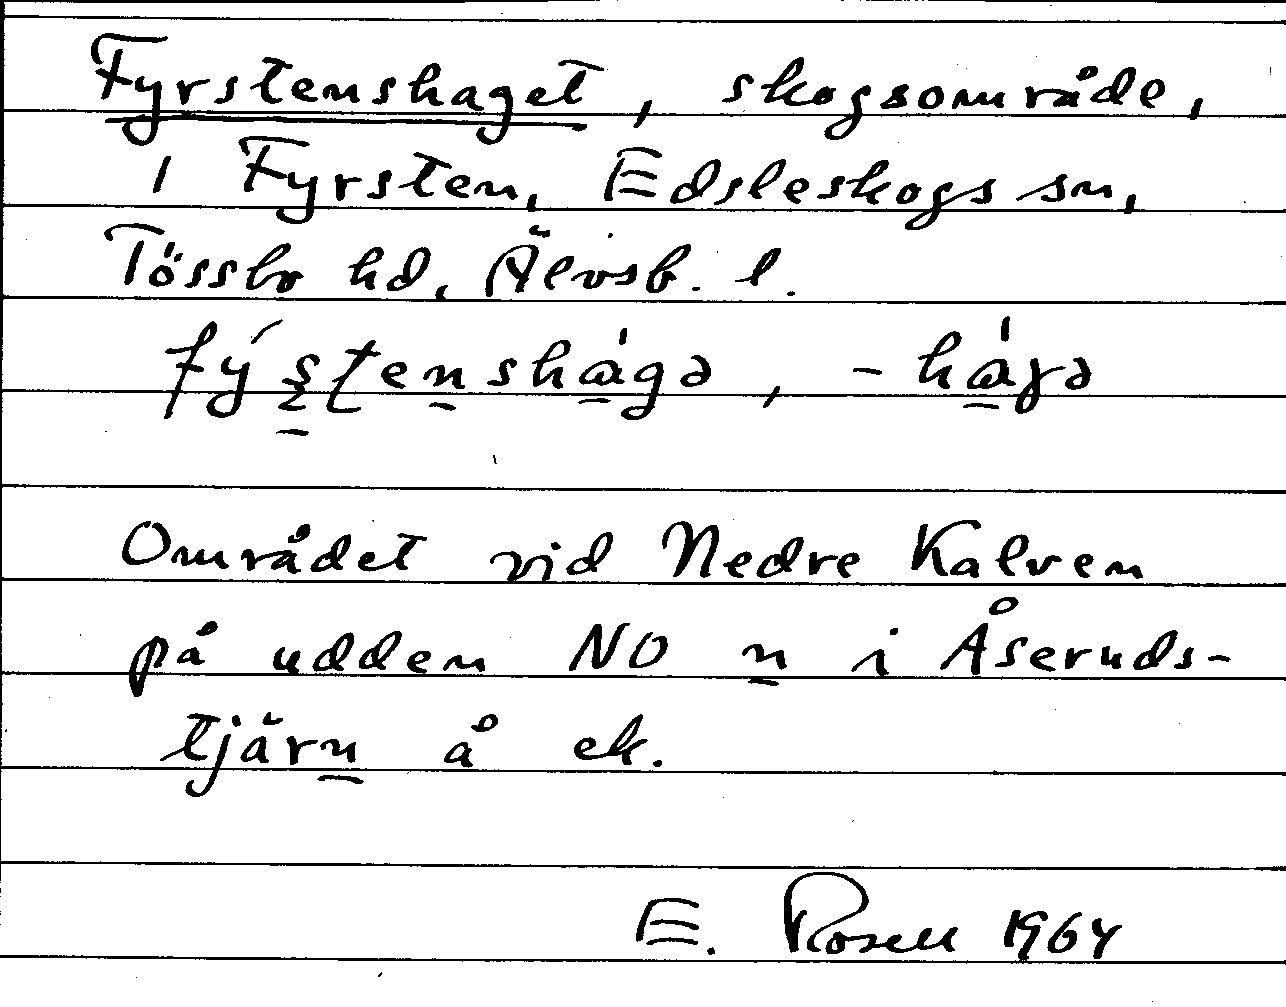 Fyrstenshaget, skogsområde,
i Fyrsten, Edsleskogs sn,
Tössbo hd, Älvsb. l.
fý ʂʈenshàgə, -hàɣə
Området vid Nedre Kalven
på udden NO n i Åseruds-
tjärn å ek.
E. Rosell 1964